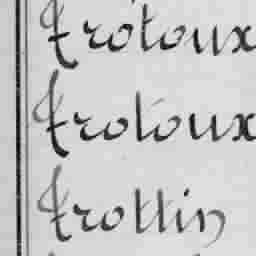 Trotoux
Trotoux
Trottin